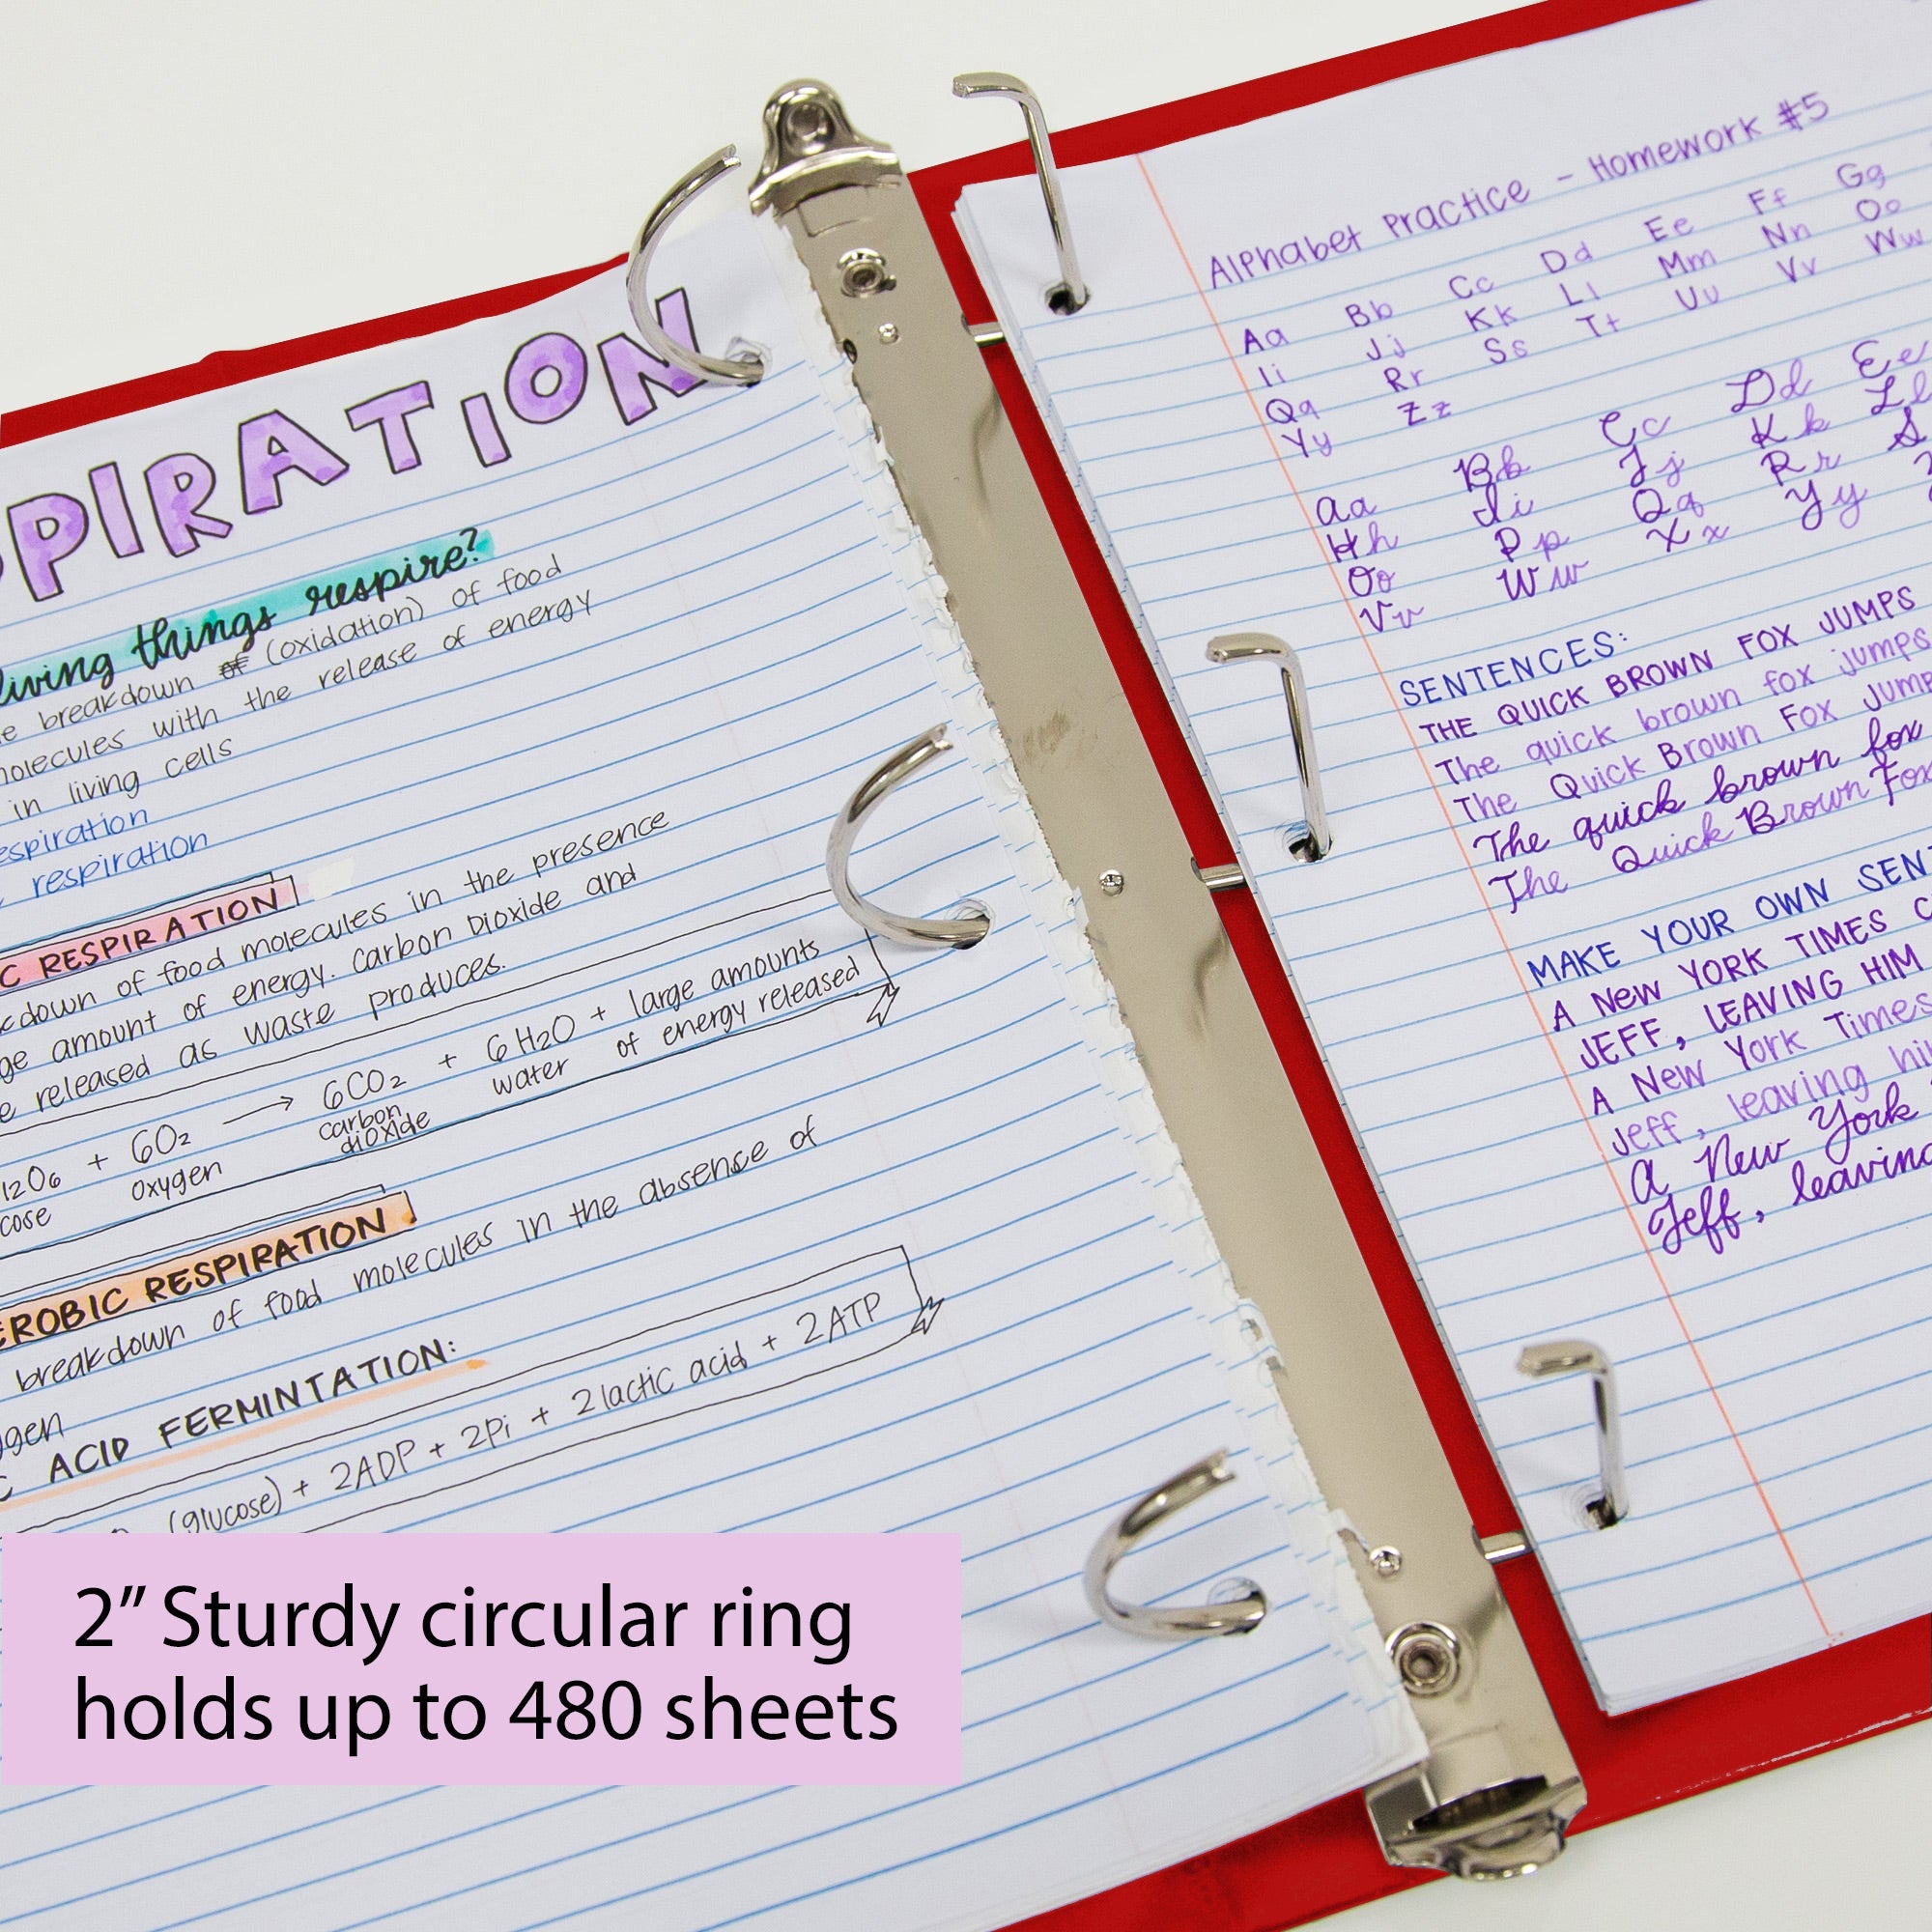 PIRATION
living things respire?
breakdown of (oxidation) of food
molecules with the release of energy
in living cells
respiration
respiration
C RESPIRATION
down of food molecules in the presence
amount of energy. Carbon Dioxide and
released as waste produces.
12O6 + 6O2 → 6CO2 + 6H2O + large amounts
cose oxygen carbon dioxide water of energy released
EROBIC RESPIRATION
breakdown of food molecules in the absence of
gen
C ACID FERMINTATION:
(glucose) + 2ADP + 2Pi + 2lactic acid + 2ATP
Alphabet Practice - Homework #5
Aa Bb Cc Dd Ee Ff Gg
Ii Jj Kk Ll Mm Nn Oo
Qq Rr Ss Tt Uu Vv Ww
Yy Zz
Aa Bb Cc Dd Ee
Hh Ii Jj Kk Ll
Oo Pp Qq Rr S
Vv Ww Xx Yy
SENTENCES:
THE QUICK BROWN FOX JUMPS
The quick brown fox jumps
The Quick Brown Fox Jump
The quick brown fox
The Quick Brown Fox
MAKE YOUR OWN SENT
A NeW YORK TIMES C
JEFF, LEAVING HIM
A New York Times
Jeff, leaving hi
A New York
Jeff, leaving
2” Sturdy circular ring
holds up to 480 sheets